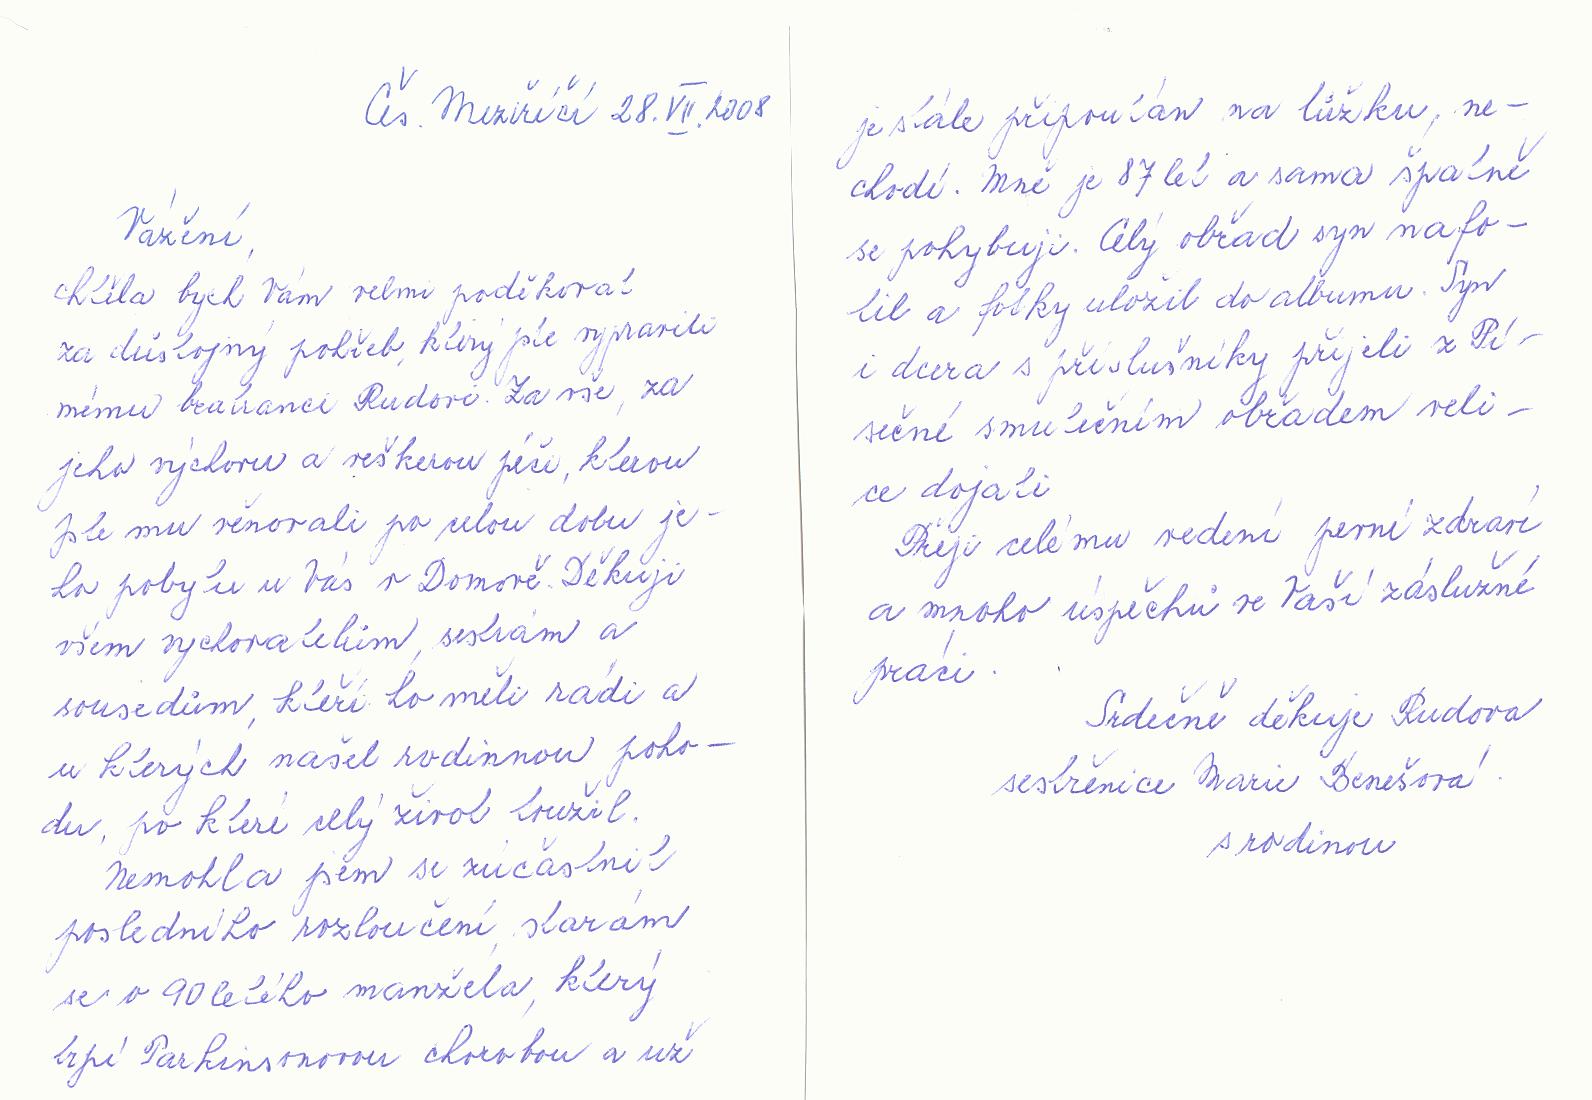 Čs. Meziříčí 28.VII.2008
Vážení,
chtěla bych Vám velmi poděkovat
za důstojný pohřeb, který jste vypravili
mému bratranci Rudovi. Za vše, za
jeho výchovu a veškerou péči, kterou
jste mu věnovali po celou dobu je-
ho pobytu u Vás v Domově. Děkuji
všem vychovatelům, sestrám a
sousedům, kteří ho měli rádi a
u kterých našel rodinnou poho-
du, po které celý život toužil.
Nemohla jsem se zúčastnit
posledního rozloučení, starám
se o 90letého manžela, který
trpí Parkinsonovou chorobou a už
je stále připoután na lůžku, ne-
chodí. Mně je 87 let a sama špatně
se pohybuji. Celý obřad syn nafo-
til a fotky uložil do albumu. Syn
i dcera s příslušníky přijeli z Pí-
sečné smutečním obřadem veli-
ce dojati
Přeji celému vedení pevné zdraví
a mnoho úspěchů ve Vaší záslužné
práci.
Srdečně děkuje Rudova
sestřenice Marie Benešová.
s rodinou